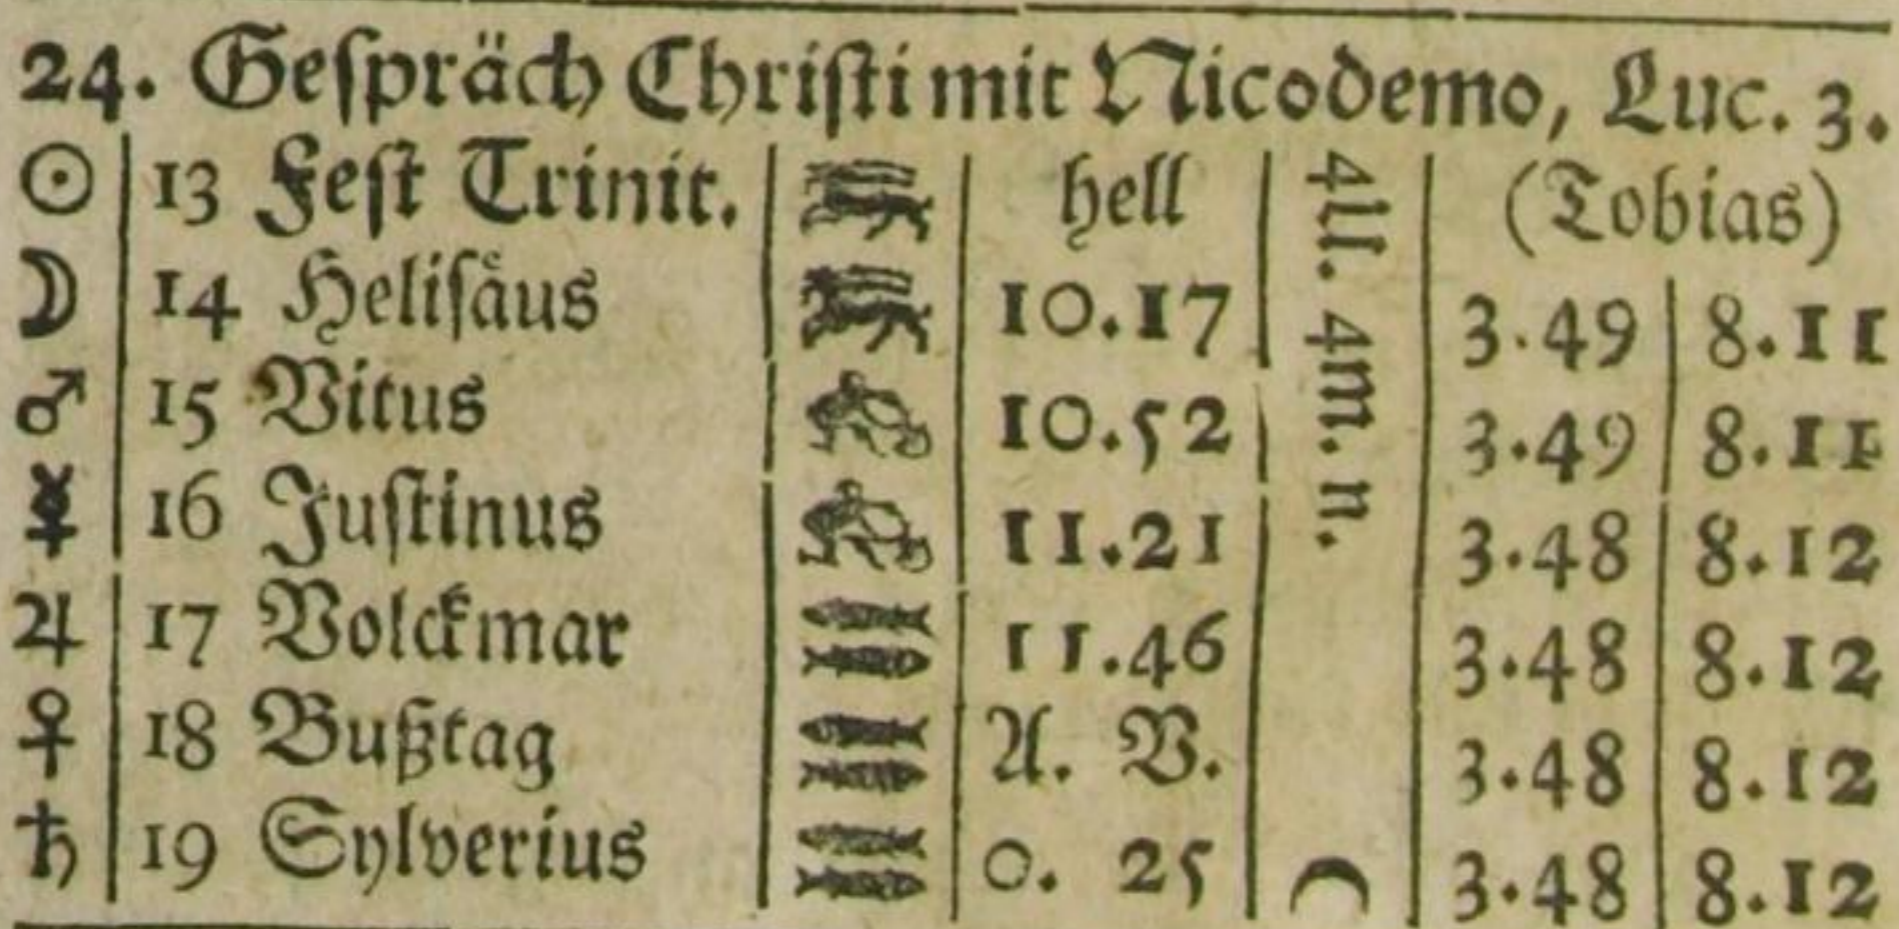 24. Geſpräch Chriſti mit Nicodemo, Luc. 3.
☉ 13 Feſt Trinit. hell (Tobias)
☽ 14 Heliſaͤus 10.17 3.49 8.11
♂ 15 Vitus 10.52 3.49 8.11
☿ 16 Juſtinus 11.21 3.48 8.12
♃ 17 Volckmar 11.46 3.48 8.12
♀ 18 Bußtag A. V. 3.48 8.12
♄ 19 Sylverius 0. 25 ☽ 3.48 8.12
4U. 4m. n.